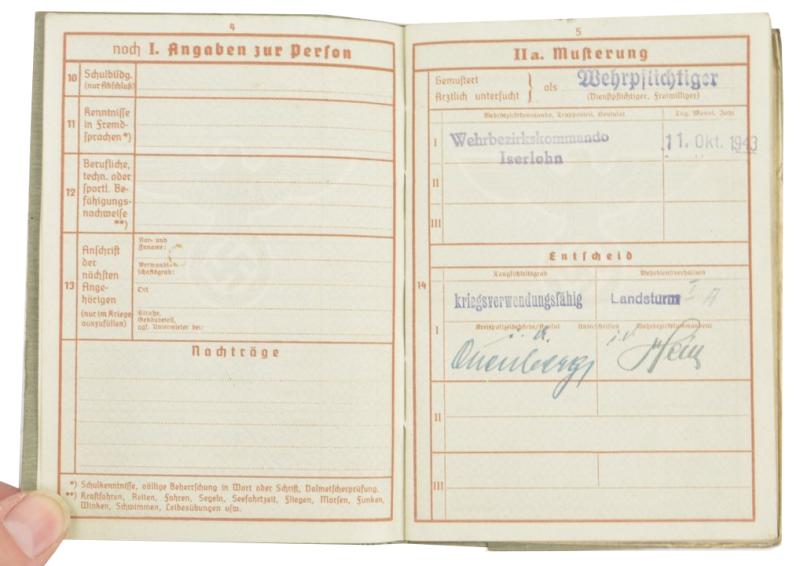 4
noch I. Angaben zur Person
10 Schulbildg.
(nur Abschluß)
11 Kenntnisse
in Fremd-
sprachen *)
12 Berufliche,
techn. oder
sportl. Be-
fähigungs-
nachweise
**)
13 Anschrift
der
nächsten
Ange-
hörigen
(nur im Kriege
auszufüllen)
Vor- und
Zuname:
Verwandt-
schaftsgrad:
Ort
Straße,
Gebäudeteil,
ggf. Untermieter bei:
Nachträge
*) Schulkenntnisse, völlige Beherrschung in Wort oder Schrift, Dolmetscherprüfung.
**) Kraftfahren, Reiten, Fahren, Segeln, Seefahrtzeit, Fliegen, Morsen, Funken,
Winken, Schwimmen, Leibesübungen usw.
5
IIa. Musterung
Gemustert
Ärztlich untersucht } als Wehrpflichtiger
(Dienstpflichtiger, Freiwilliger)
Tag, Monat, Jahr
I Wehrbezirkskommando
Iserlohn
11. Okt. 1943
II
III
Entscheid
14
Tauglichkeitsgrad Wehrdienstverhältnis
kriegsverwendungsfähig Landsturm I A
I
Unterschriften
II
III